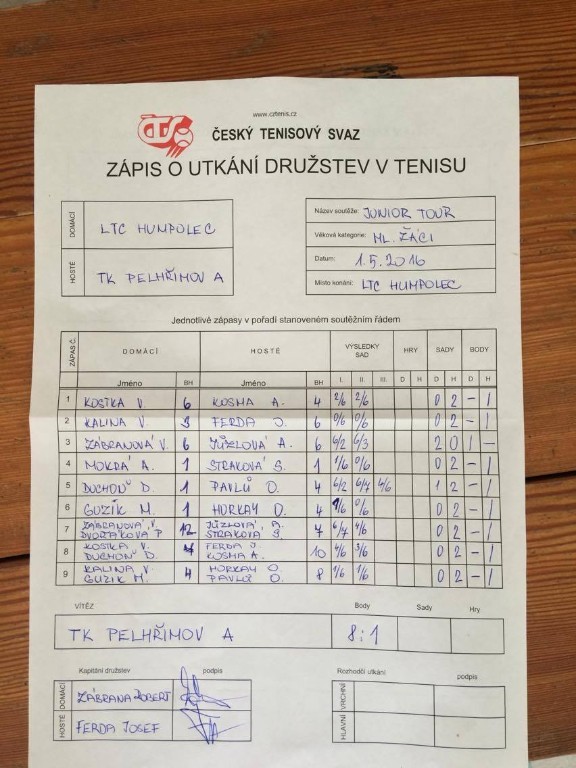 www.cztenis.cz
ČTS
ČESKÝ TENISOVÝ SVAZ
ZÁPIS O UTKÁNÍ DRUŽSTEV V TENISU
DOMÁCÍ LTC HUMPOLEC
HOSTÉ TK PELHŘIMOV A
Název soutěže: JUNIOR TOUR
Věková kategorie: ML. ŽÁCI
Datum: 1.5.2016
Místo konání: LTC HUMPOLEC
Jednotlivé zápasy v pořadí stanoveném soutěžním řádem
ZÁPAS Č. DOMÁCÍ HOSTÉ VÝSLEDKY SAD HRY SADY BODY
Jméno BH Jméno BH I. II. III. D H D H D H
1 KOSTKA V. 6 KOSMA A. 4 2/6 2/6 0 2 - 1
2 KALINA V. 3 FERDA J. 6 0/6 0/6 0 2 - 1
3 ZÁBRANOVÁ V. 6 JŮZLOVÁ A. 6 6/2 6/3 2 0 1 -
4 MOKRÁ A. 1 STRAKOVÁ S. 1 1/6 0/6 0 2 - 1
5 DUCHOŇ D. 1 PAVLŮ O. 4 6/2 6/4 4/6 1 2 - 1
6 GUZIK M. 1 HORKAY O. 4 1/6 0/6 0 2 - 1
7 ZÁBRANOVÁ V. DVOŘÁKOVÁ P 12 JŮZLOVÁ A. STRAKOVÁ S. 7 6/7 4/6 0 2 - 1
8 KOSTKA V. DUCHOŇ D. FERDA J. KOSMA A. 10 4/6 3/6 0 2 - 1
9 KALINA V. GUZIK M. 4 HORKAY O. PAVLŮ O. 8 1/6 1/6 0 2 - 1
VÍTĚZ Body Sady Hry
TK PELHŘIMOV A 8:1
Kapitáni družstev podpis
DOMÁCÍ ZÁBRANA ROBERT
HOSTÉ FERDA JOSEF
Rozhodčí utkání podpis
VRCHNÍ
HLAVNÍ